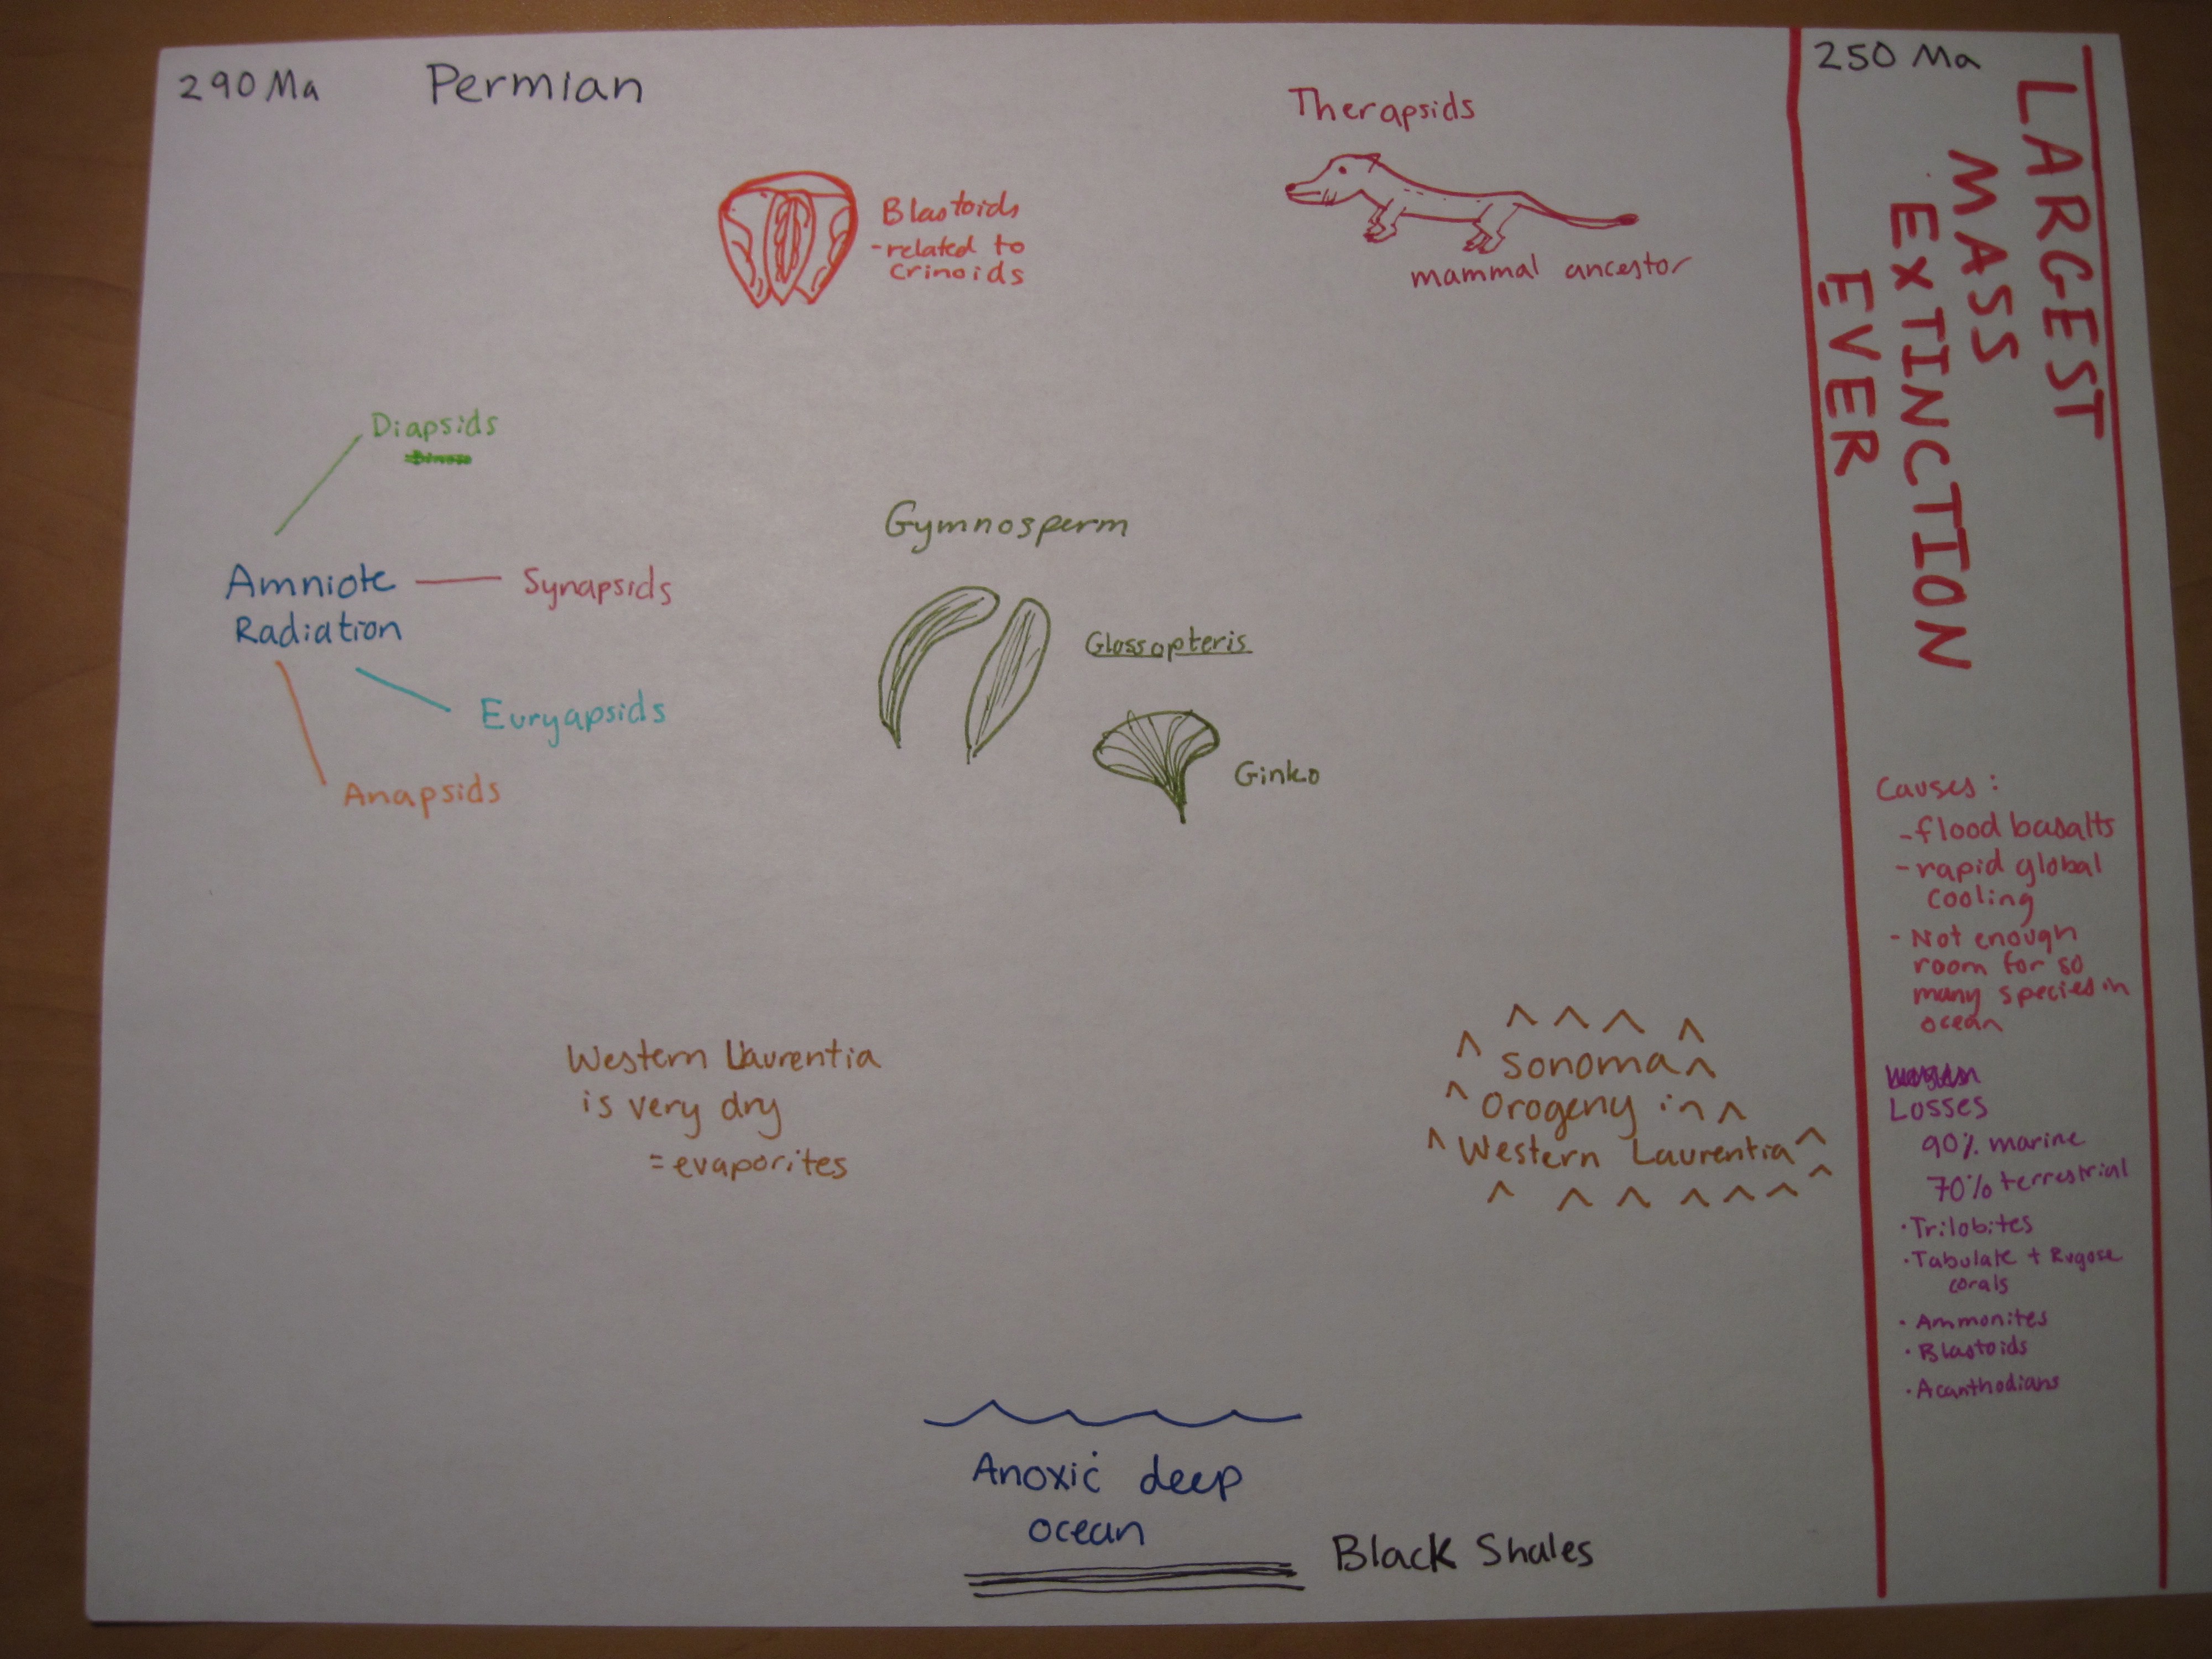 290 Ma
Permian
250 Ma
Therapsids
mammal ancestor
Blastoids
-related to
Crinoids
Diapsids
Amniote
Radiation
Synapsids
Euryapsids
Anapsids
Gymnosperm
Glossopteris
Ginko
Western Laurentia
is very dry
=evaporites
Sonoma
Orogeny in
Western Laurentia
Anoxic deep
ocean
Black Shales
LARGEST
MASS
EXTINCTION
EVER
Causes:
-flood basalts
-rapid global
cooling
- Not enough
room for so
many species in
ocean
Losses
90% marine
70% terrestrial
·Trilobites
·Tabulate + Rugose
corals
· Ammonites
· Blastoids
·Acanthodians